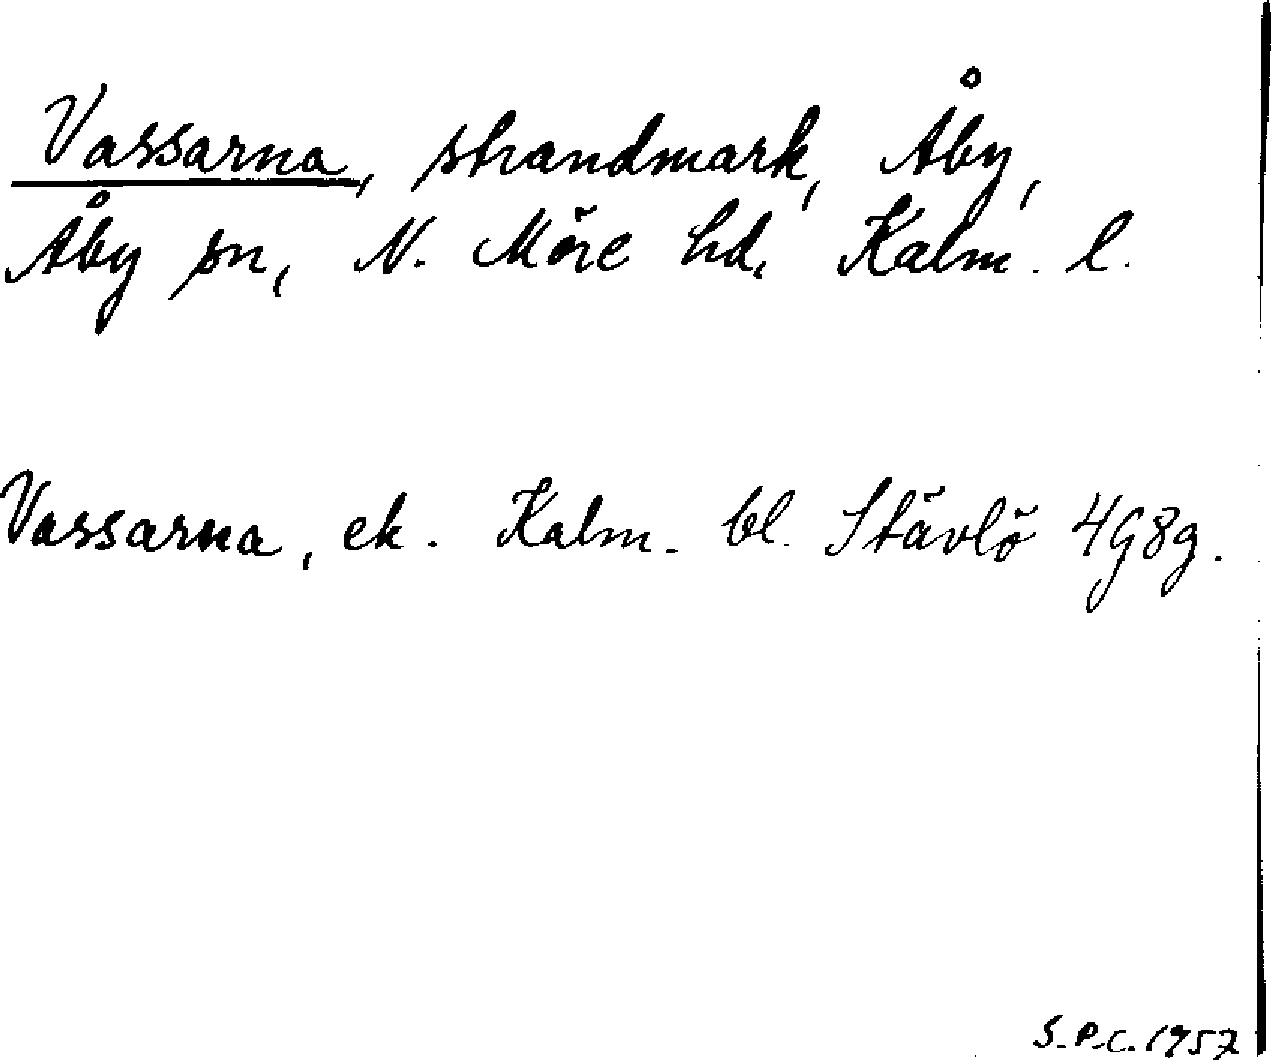 Vassarna, strandmark, Åby,
Åby sn, N. Möre hd, Kalm. l.
Vassarna, ek. Kalm. bl. Stävlö 4G8g.
S.P.C. 1957